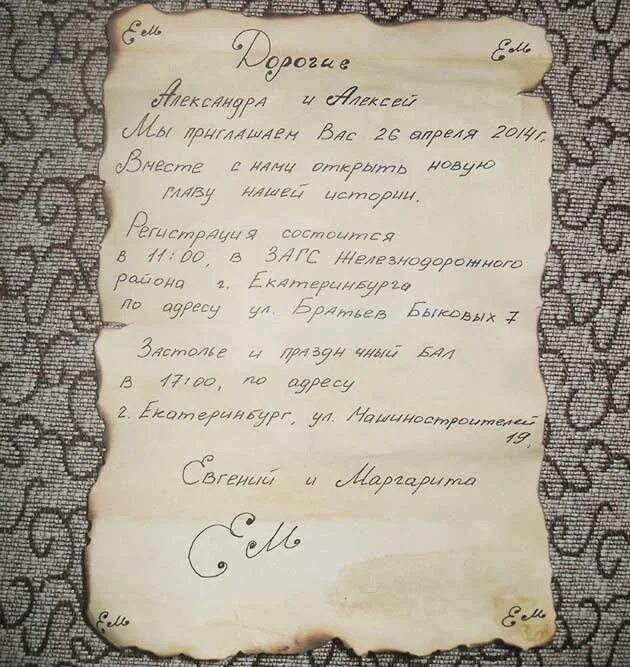 ЕМ ЕМ
Дорогие
Александра и Алексей
Мы приглашаем Вас 26 апреля 2014г.
Вместе с нами открыть новую
главу нашей истории.
Регистрация состоится
в 11:00, в ЗАГС Железнодорожного
района г. Екатеринбурга
по адресу ул. Братьев Быковых 7
Застолье и праздничный бал
в 17:00, по адресу
г. Екатеринбург, ул. Машиностроителей
19.
Евгений и Маргарита
ЕМ
ЕМ ЕМ